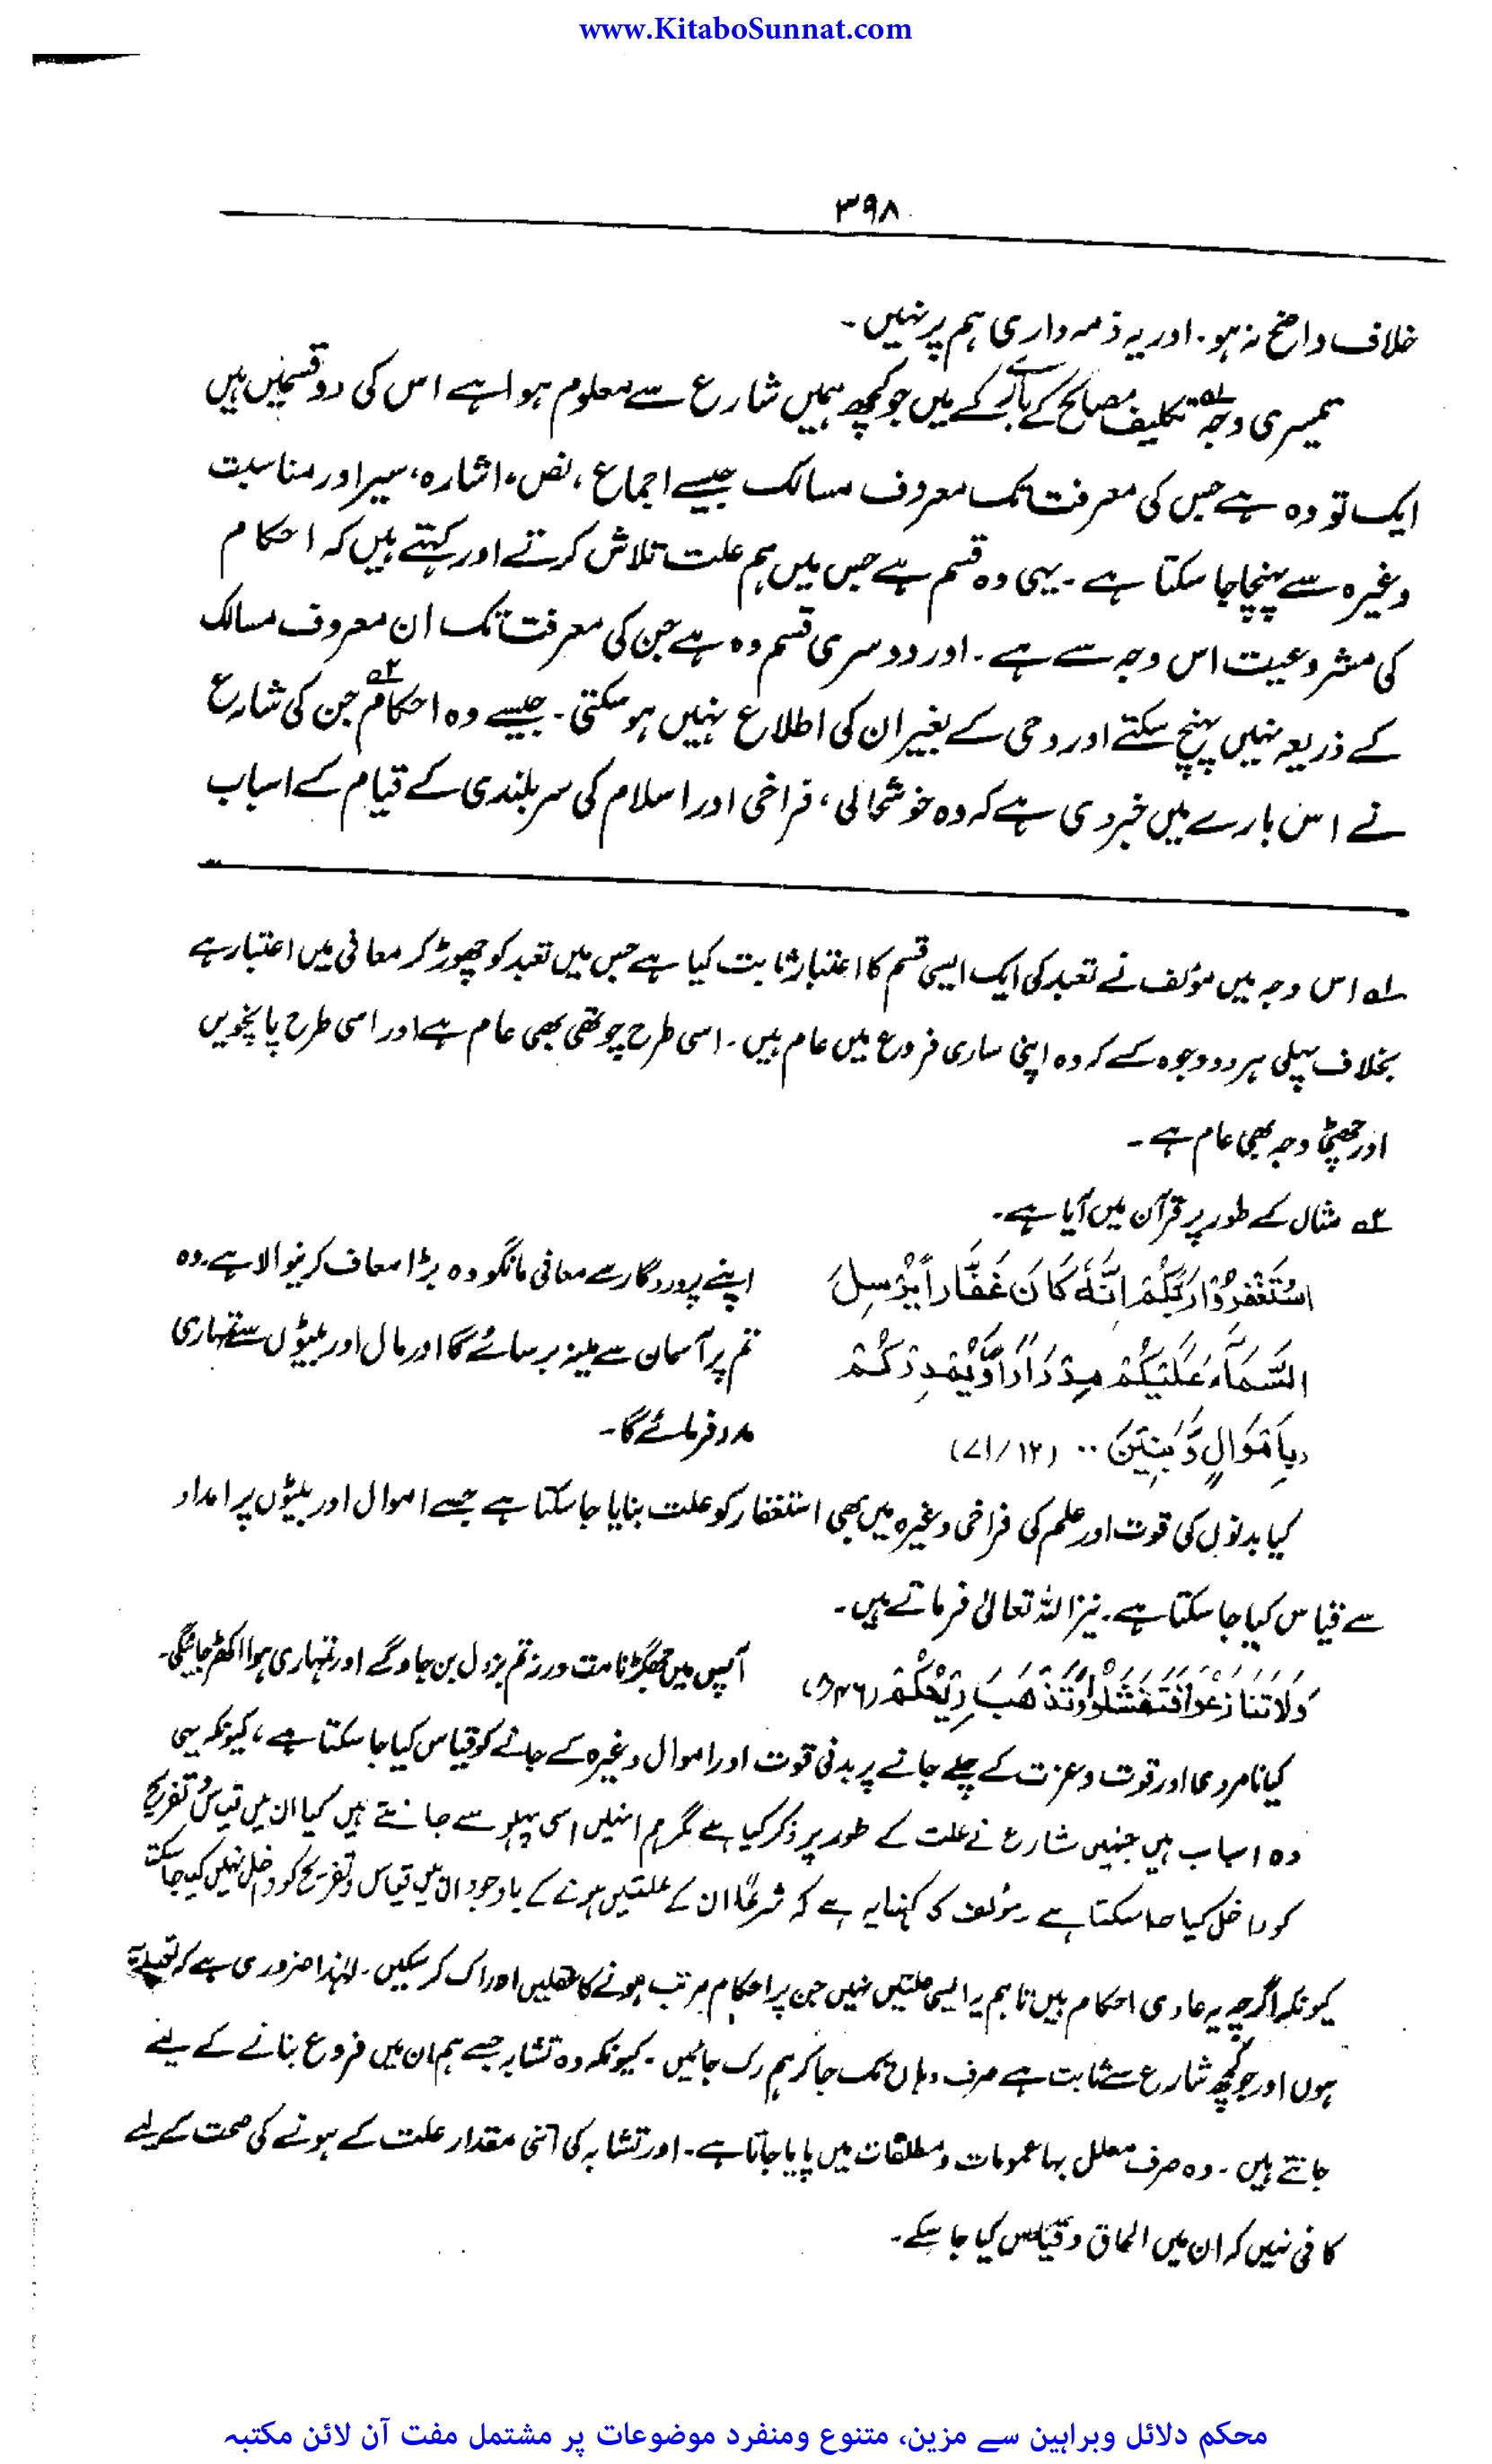 www.KitaboSunnat.com
۳۹۸
خلاف واضح نہ ہو۔ اور یہ ذمہ داری ہم پر نہیں۔
تیسری وجہ ؎۱ تکلیف مصالح کے بارے کے میں جو کچھ ہمیں شارع سے معلوم ہوا ہے اس کی دو قسمیں ہیں
ایک تو وہ ہے جس کی معرفت تک معروف مسالک جیسے اجماع، نص، اشارہ، سبر اور مناسبت
وغیرہ سے پہنچا جا سکتا ہے۔ یہی وہ قسم ہے جس میں ہم علت تلاش کرتے اور کہتے ہیں کہ احکام
کی مشروعیت اس وجہ سے ہے۔ اور دوسری قسم وہ ہے جن کی معرفت تک ان معروف مسالک
کے ذریعہ نہیں پہنچ سکتے اور وحی کے بغیر ان کی اطلاع نہیں ہو سکتی۔ جیسے وہ احکام ؎۲ جن کی شارع
نے اس بارے میں خبر دی ہے کہ وہ خوشحالی، فراخی اور اسلام کی سربلندی کے قیام کے اسباب
؎۱ اس وجہ میں مؤلف نے تعبد کی ایک ایسی قسم کا اعتبار ثابت کیا ہے جس میں تعبد کو چھوڑ کر معانی میں اعتبار ہے
بخلاف پہلی ہر دو وجوہ کے کہ وہ اپنی ساری فروع میں عام ہیں۔ اسی طرح چوتھی بھی عام ہے اور اسی طرح پانچویں
اور چھٹی وجہ بھی عام ہے۔
؎۲ مثال کے طور پر قرآن میں آیا ہے۔
اسْتَغْفِرُوْا رَبَّكُمْ اِنَّهٗ كَانَ غَفَّاراً يُرْسِلَ اپنے پروردگار سے معافی مانگو وہ بڑا معاف کرنیوالا ہے۔ وہ
السَّمَآءَ عَلَيْكُمْ مِدْرَاراً وَّيُمْدِدْكُمْ تم پر آسمان سے مینہ برسائے گا اور مال اور بیٹوں سے تمہاری
بِاَمْوَالٍ وَّبَنِيْنَ ۰۰ (۷۱/۱۲) مدد فرمائے گا۔
کیا بدنوں کی قوت اور علم کی فراخی وغیرہ میں بھی استغفار کو علت بنایا جا سکتا ہے جسے اموال اور بیٹوں پر امداد
سے قیاس کیا جا سکتا ہے۔ نیز اللہ تعالیٰ فرماتے ہیں۔
وَلَا تَنَازَعُوْا فَتَفْشَلُوْا وَتَذْهَبَ رِيْحُكُمْ (۸/۴۶) آپس میں جھگڑنا مت ورنہ تم بزدل بن جاو گے اور تمہاری ہوا اکھڑ جائیگی۔
کیا نامردی اور قوت و عزت کے چلے جانے پر بدنی قوت اور اموال وغیرہ کے جانے کو قیاس کیا جا سکتا ہے، کیونکہ یہی
وہ اسباب ہیں جنہیں شارع نے علت کے طور پر ذکر کیا ہے مگر ہم انہیں اسی پہلو سے جانتے ہیں کیا ان میں قیاس و تفریح
کو داخل کیا جا سکتا ہے۔ مؤلف کا کہنا یہ ہے کہ شرعاً ان کے علتیں ہونے کے باوجود ان میں قیاس و تفریح کو داخل نہیں کیا جا سکتا
کیونکہ اگرچہ یہ عادی احکام ہیں تاہم یہ ایسی علتیں نہیں جن پر احکام مرتب ہونے کا عقلیں ادراک کر سکیں۔ لہٰذا ضروری ہے کہ تعبدیہ
ہوں اور جو کچھ شارع سے ثابت ہے صرف وہاں تک جا کر ہم رک جائیں۔ کیونکہ وہ تشابہ جسے ہم ان میں فروع بنانے کے لئے
جانتے ہیں۔ وہ صرف معلل بہا عمومات و مطلقات میں پایا جاتا ہے۔ اور تشابہ کی اتنی مقدار علت کے ہونے کی صحت کے لیے
کافی نہیں کہ ان میں الحاق و قیاس کیا جا سکے۔
محکم دلائل وبراہین سے مزین، متنوع ومنفرد موضوعات پر مشتمل مفت آن لائن مکتبہ